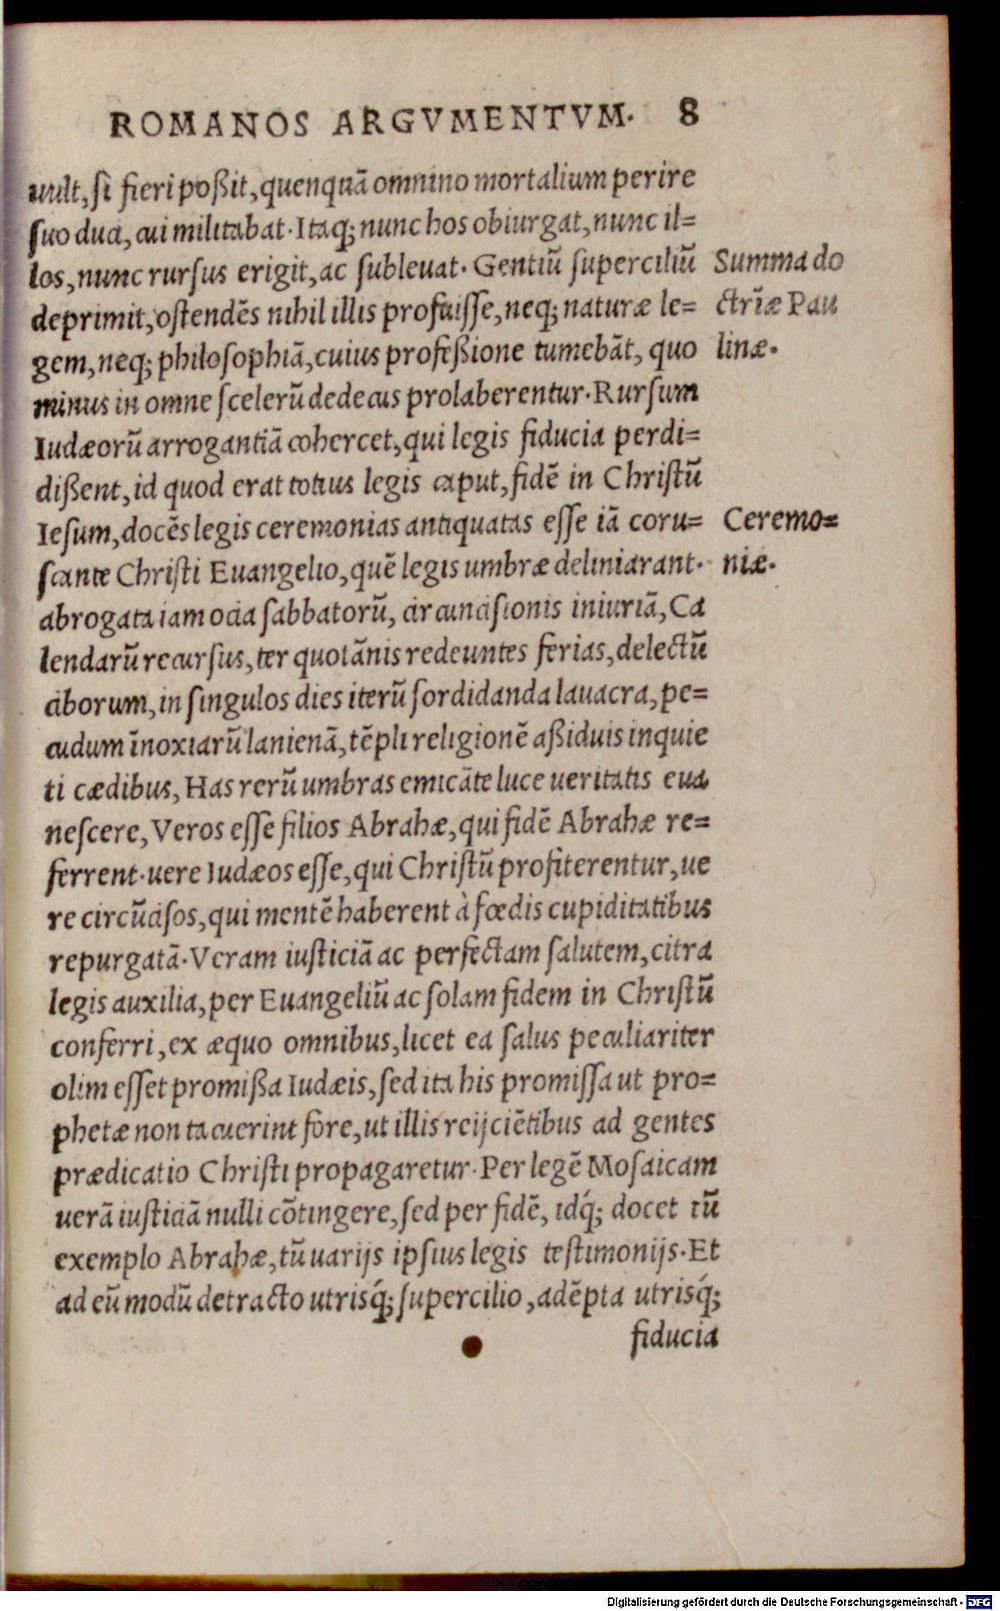 ROMANOS ARGVMENTVM. 8
uult, si fieri poßit, quenquā omnino mortalium perire
suo duci, cui militabat. Itaq; nunc hos obiurgat, nunc il=
los, nunc rursus erigit, ac subleuat. Gentiū superciliū
deprimit, ostendēs nihil illis profuisse, neq; naturæ le=
gem, neq; philosophiā, cuius profeßione tumebāt, quo
minus in omne scelerū dedecus prolaberentur. Rursum
Iudæorū arrogantiā cohercet, qui legis fiducia perdi=
dißent, id quod erat totius legis caput, fidē in Christū
Iesum, docēs legis ceremonias antiquatas esse iā coru=
scante Christi Euangelio, quē legis umbræ deliniarant.
abrogata iam ocia sabbatorū, circuncisionis iniuriā, Ca
lendarū recursus, ter quotānis redeuntes ferias, delectū
ciborum, in singulos dies iterū sordidanda lauacra, pe=
cudum īnoxiarū lanienā, tēpli religionē aßiduis inquie
ti cædibus, Has rerū umbras emicāte luce ueritatis eua
nescere, Veros esse filios Abrahæ, qui fidē Abrahæ re=
ferrent. uere Iudæos esse, qui Christū profiterentur, ue
re circūcisos, qui mentē haberent à fœdis cupiditatibus
repurgatā. Veram iusticiā ac perfectam salutem, citra
legis auxilia, per Euangeliū ac solam fidem in Christū
conferri, ex æquo omnibus, licet ea salus peculiariter
olim esset promißa Iudæis, sed ita his promissa ut pro=
phetæ non tacuerint fore, ut illis reijciētibus ad gentes
prædicatio Christi propagaretur. Per legē Mosaicam
uerā iusticiā nulli cōtingere, sed per fidē, idq́; docet tū
exemplo Abrahæ, tū uarijs ipsius legis testimonijs. Et
ad eū modū detracto utrisq́; supercilio, adēpta utrisq́;
fiducia
Summa do
ctrīæ Pau
linæ.
Ceremo=
niæ.
Digitalisierung gefördert durch die Deutsche Forschungsgemeinschaft - DFG